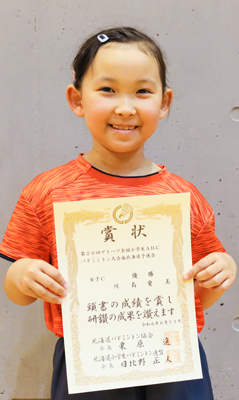 賞状
第20回ダイハツ全国小学生ABC
バドミントン大会北海道予選会
女子C 優勝
川島愛美
頭書の成績を賞し
研鑽の成果を讃えます
北海道バドミントン協会
会長 栗原
北海道小学生バドミントン連盟
会長 日比野正人